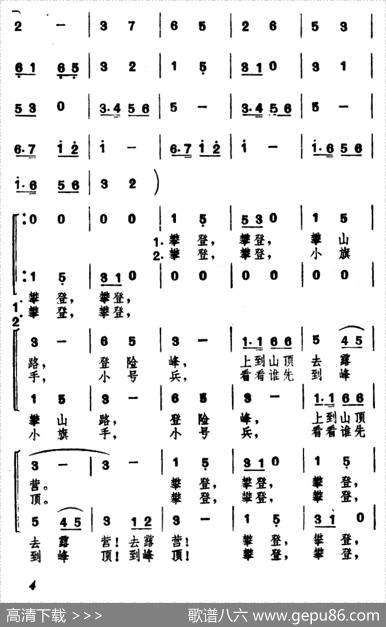 2 - | 3 7 | 6 5 | 2 6 | 5 3 |
6 1 6 5 | 3 2 | 1 5 | 3 1 0 | 3 1 |
5 3 0 | 3·4 5 6 | 5 - | 3·4 5 6 | 5 - |
6·7 1 2 | 1 - | 6·7 1 2 | 1 - | 1·6 5 6 |
1·6 5 6 | 3 2 )
0 0 | 0 0 | 1 5 | 5 3 0 | 1 5 |
1.攀登, 攀登, 攀山
2.攀登, 攀登, 小旗
1 5 | 3 1 0 | 0 0 | 0 0 | 0 0 |
1.攀登, 攀登,
2.攀登, 攀登,
3 - | 6 5 | 3 - | 1·1 6 6 | 5 4 5 |
路, 登险峰, 上到山顶去露
手, 小号兵, 看看谁先到峰
1 5 | 3 - | 6 5 | 3 - | 1·1 6 6 |
攀山路, 登险峰, 上到山顶
小旗手, 小号兵, 看看谁先
3 - | 3 - | 1 5 | 3 1 0 | 1 5 |
营。 攀登, 攀登, 攀登,
顶。 攀登, 攀登, 攀登,
5 4 5 | 3 1 2 | 3 - | 1 5 | 3 1 0 |
去露营!去露营! 攀登, 攀登,
到峰顶!到峰顶! 攀登, 攀登,
4
高清下载 >>>
歌谱八六 www.gepu86.com